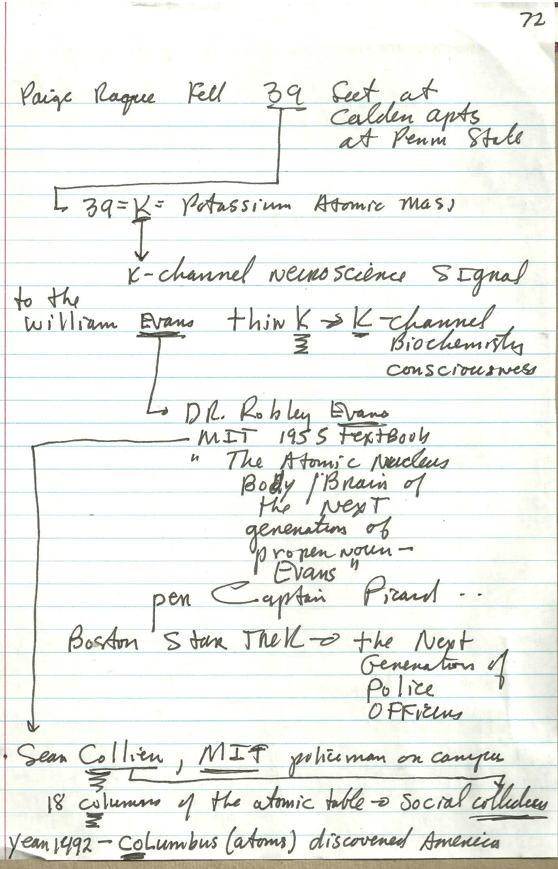 72
Paige Raque Fell 39 Feet at
Calden apts
at Penn State
39 = K = Potassium Atomic Mass
K-channel neuroscience signal
to the
William Evans thin K → K-channel
Biochemistry
consciousness
DR. Robley Evans
MIT 1955 textbook
" The Atomic Nucleus
Body / Brain of
the Next
generation of
proper noun -
Evans "
per Captain Picard ..
Boston Star TreK → the Next
Generation of
Police
Officers
. Sean Collier, MIT policeman on campus
18 columns of the atomic table → social colliders
year 1492 - Columbus (atoms) discovered America